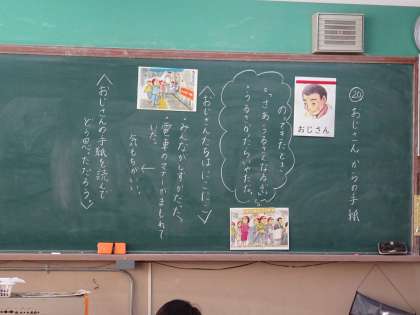 ⑳ おじさんからの手紙
おじさん
のってきたとき
・さあ、うるさくなるぞ。
・うるさがたらいやだな。
<おじさんたちはにこにこ>
・みんながしずかだった。
・電車のマナーがまもれて
いた。
↓
気もちがいい。
<おじさんの手紙を読んで
どう思っただろう。>